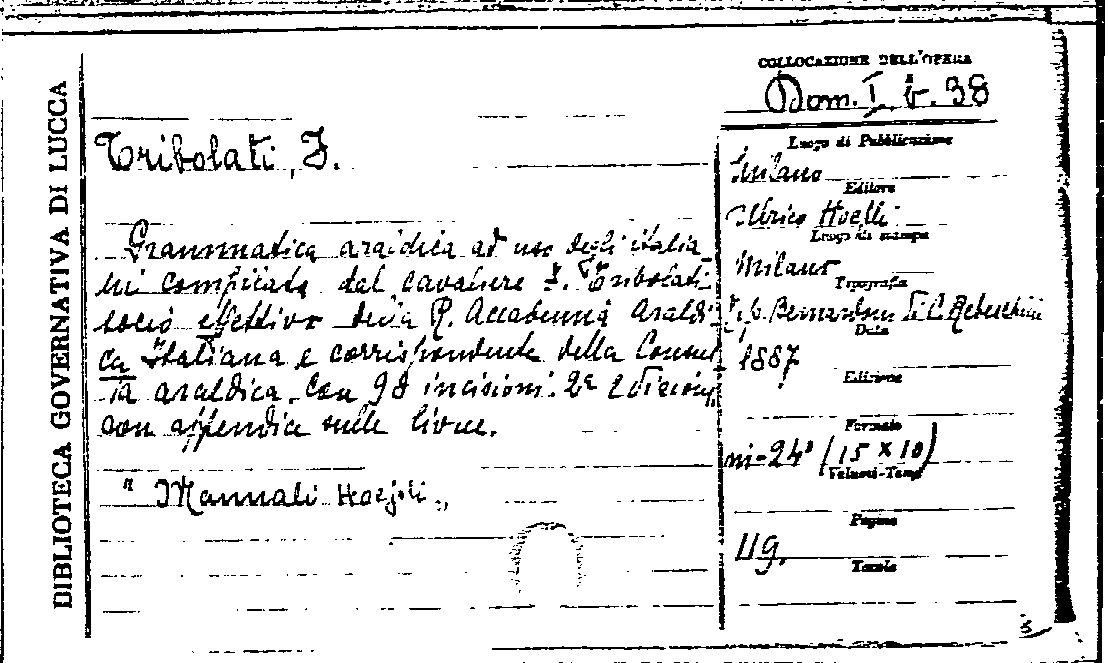 BIBLIOTECA GOVERNATIVA DI LUCCA
COLLOCAZIONE DELL'OPERA
Dom. I. b. 98
Tribolati, F.
Grammatica araldica ad uso degli italia-
ni compilata dal cavaliere F. Tribolati
socio effettivo della R. Accademia Araldi-
ca Italiana e corrispondente della Consul-
ta araldica. Con 98 incisioni. 2ª edizione
con appendice sulle livree.
"Manuali Hoepli"
Luogo di Pubblicazione
Milano
Editore
Ulrico Hoepli
Luogo di stampa
Milano
Tipografia
Tip. Bernardoni di C. Rebeschini
Data
1887
Edizione
Formato
in-24° (15 x 10)
Volumi-Tomi
Pagine
119.
Tavole